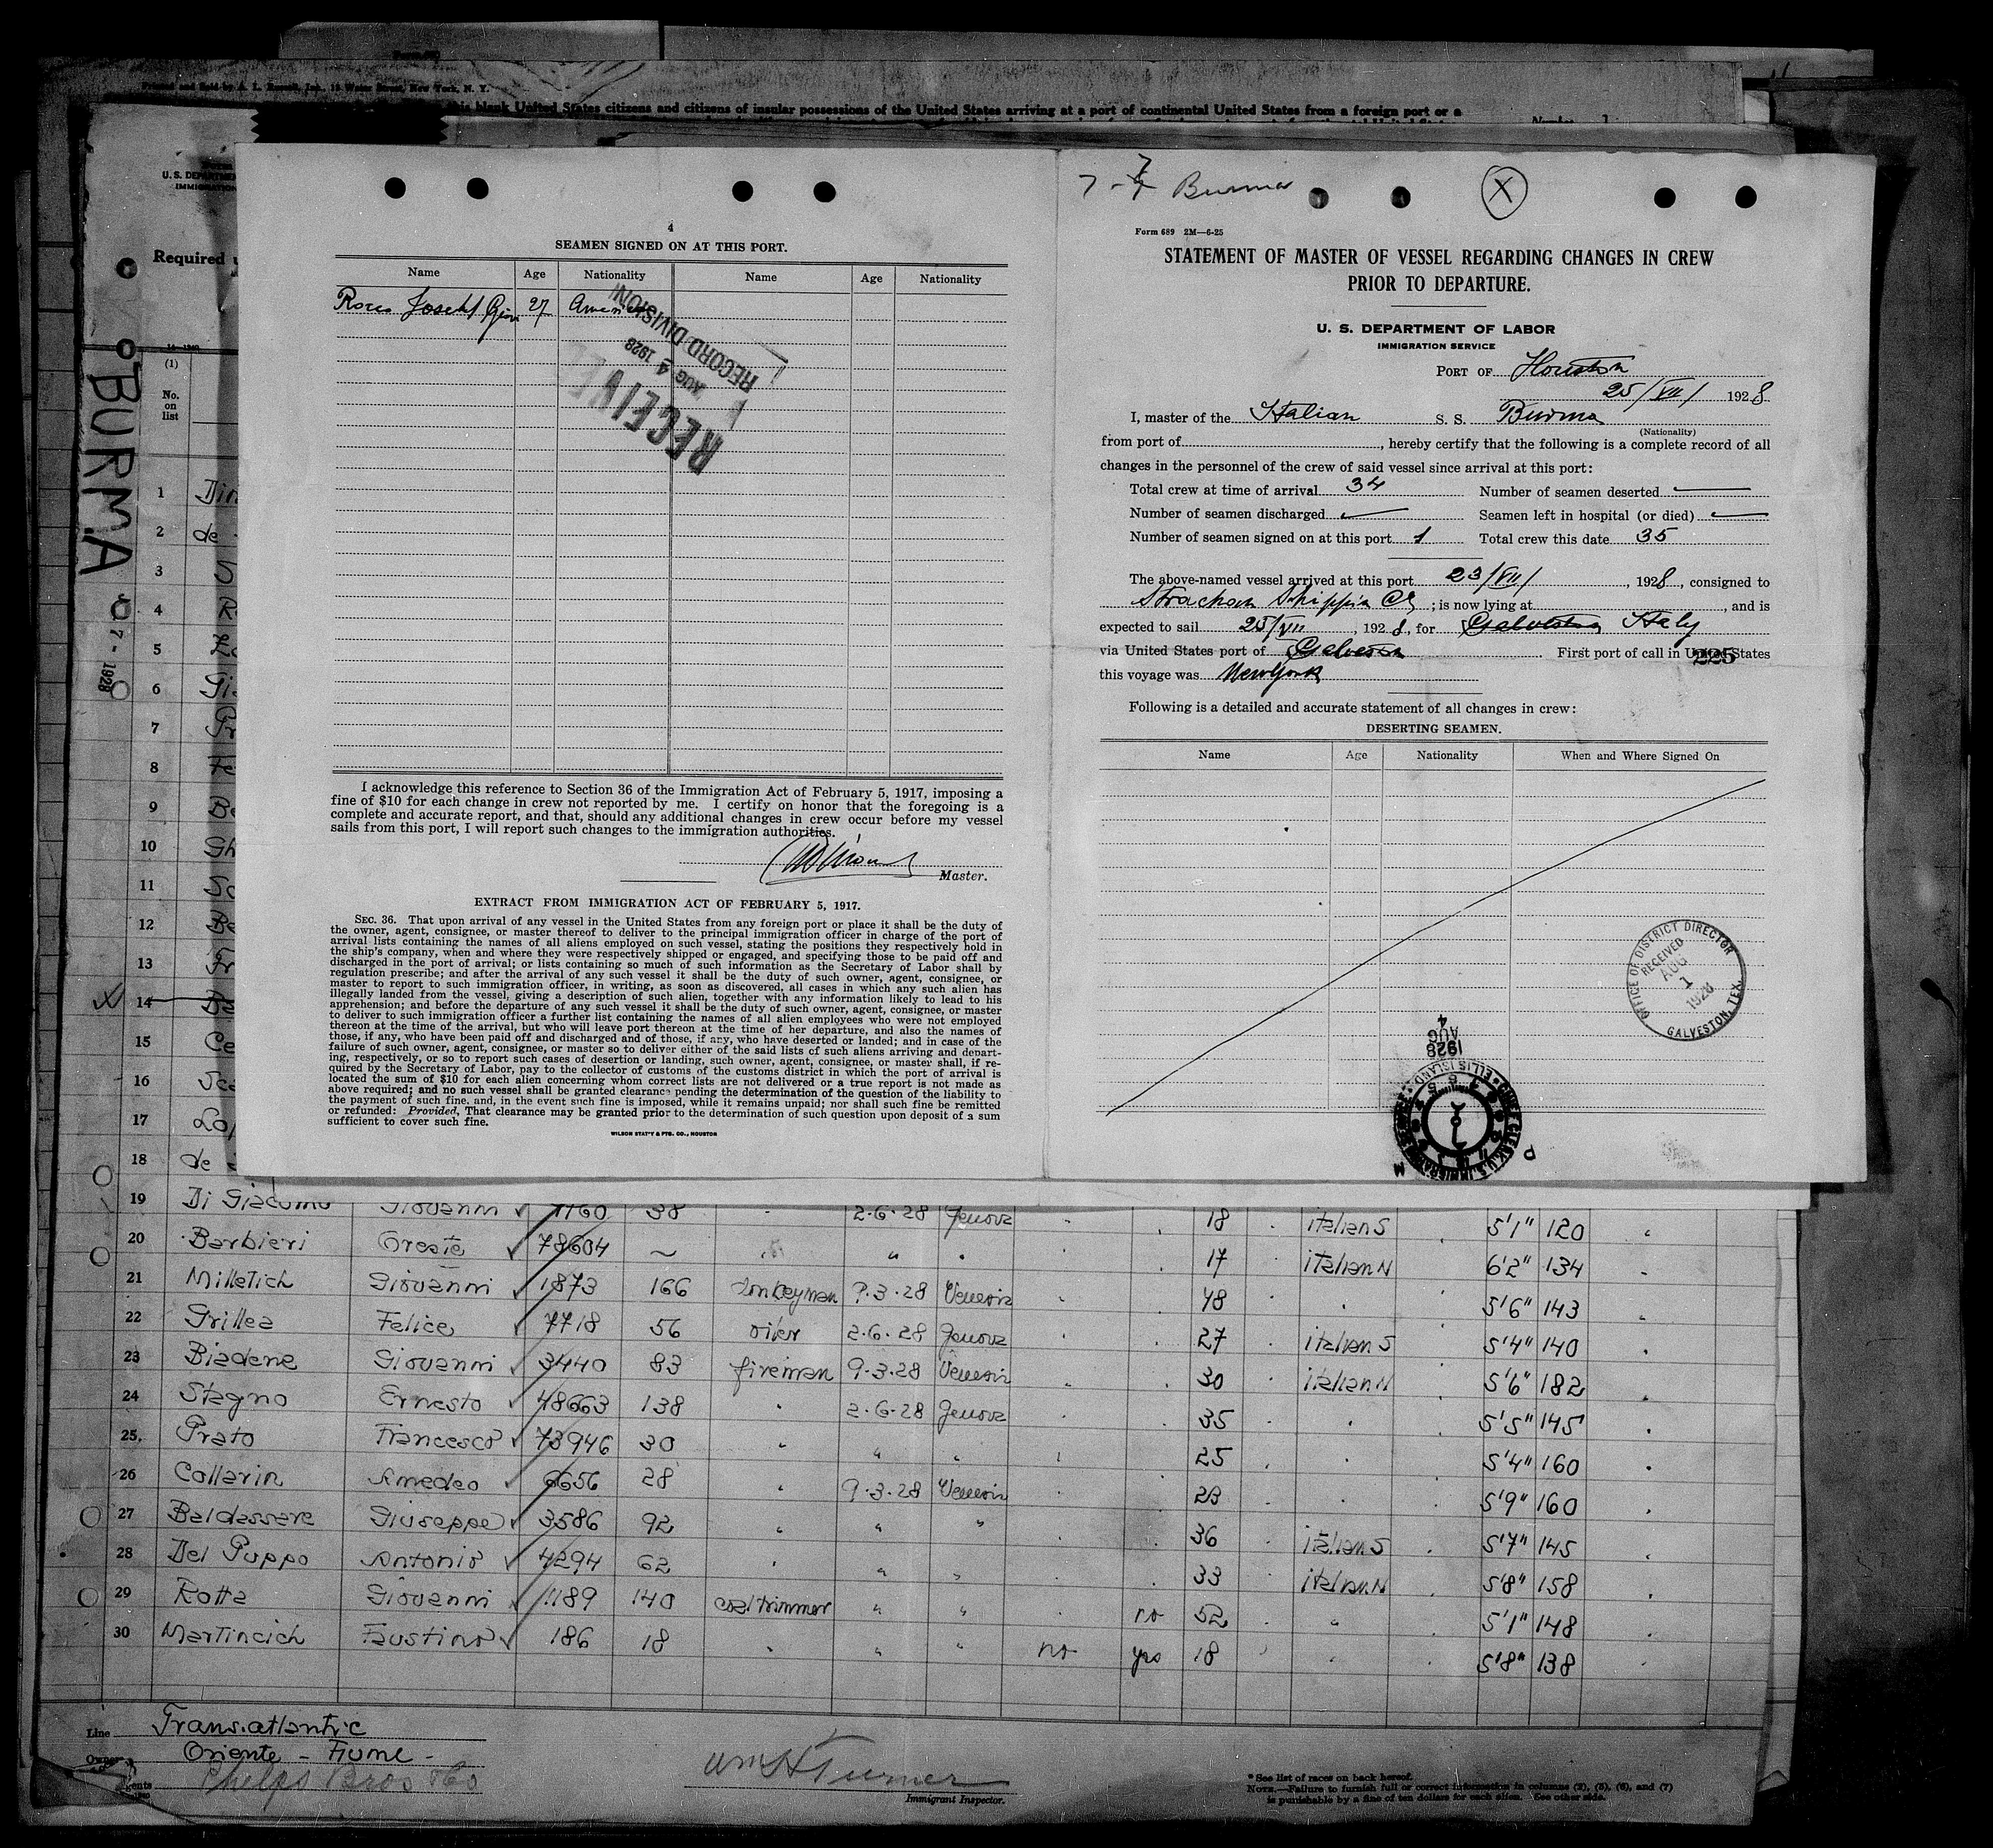 Printed and Sold by A. L. Russell, Inc., 18 Water Street, New York, N. Y.
this blank United States citizens and citizens of insular possessions of the United States arriving at a port of continental United States from a foreign port or a
U. S. DEPARTMENT
IMMIGRATION
Required
BURMA
7-1928
(1)
No. on list
4
SEAMEN SIGNED ON AT THIS PORT.
Name Age Nationality Name Age Nationality
27
RECEIVED
AUG 4 1928
RECORD DIVISION
I acknowledge this reference to Section 36 of the Immigration Act of February 5, 1917, imposing a
fine of $10 for each change in crew not reported by me. I certify on honor that the foregoing is a
complete and accurate report, and that, should any additional changes in crew occur before my vessel
sails from this port, I will report such changes to the immigration authorities.
Master.
EXTRACT FROM IMMIGRATION ACT OF FEBRUARY 5, 1917.
SEC. 36. That upon arrival of any vessel in the United States from any foreign port or place it shall be the duty of
the owner, agent, consignee, or master thereof to deliver to the principal immigration officer in charge of the port of
arrival lists containing the names of all aliens employed on such vessel, stating the positions they respectively hold in
the ship's company, when and where they were respectively shipped or engaged, and specifying those to be paid off and
discharged in the port of arrival; or lists containing so much of such information as the Secretary of Labor shall by
regulation prescribe; and after the arrival of any such vessel it shall be the duty of such owner, agent, consignee, or
master to report to such immigration officer, in writing, as soon as discovered, all cases in which any such alien has
illegally landed from the vessel, giving a description of such alien, together with any information likely to lead to his
apprehension; and before the departure of any such vessel it shall be the duty of such owner, agent, consignee, or master
to deliver to such immigration officer a further list containing the names of all alien employees who were not employed
thereon at the time of the arrival, but who will leave port thereon at the time of her departure, and also the names of
those, if any, who have been paid off and discharged and of those, if any, who have deserted or landed; and in case of the
failure of such owner, agent, consignee, or master so to deliver either of the said lists of such aliens arriving and depart-
ing, respectively, or so to report such cases of desertion or landing, such owner, agent, consignee, or master shall, if re-
quired by the Secretary of Labor, pay to the collector of customs of the customs district in which the port of arrival is
located the sum of $10 for each alien concerning whom correct lists are not delivered or a true report is not made as
above required; and no such vessel shall be granted clearance pending the determination of the question of the liability to
the payment of such fine, and, in the event such fine is imposed, while it remains unpaid; nor shall such fine be remitted
or refunded: Provided, That clearance may be granted prior to the determination of such question upon deposit of a sum
sufficient to cover such fine.
WILSON STAT'Y & PTG. CO., HOUSTON
Burma X
Form 689 2M—6-25
STATEMENT OF MASTER OF VESSEL REGARDING CHANGES IN CREW
PRIOR TO DEPARTURE.
U. S. DEPARTMENT OF LABOR
IMMIGRATION SERVICE
PORT OF Houston
25/VII/ 1928
I, master of the Italian S. S. Burma
(Nationality)
from port of , hereby certify that the following is a complete record of all
changes in the personnel of the crew of said vessel since arrival at this port:
Total crew at time of arrival 34 Number of seamen deserted —
Number of seamen discharged — Seamen left in hospital (or died) —
Number of seamen signed on at this port 1 Total crew this date 35
The above-named vessel arrived at this port 23/VII/ , 1928, consigned to
Strachan Shippin Co ; is now lying at , and is
expected to sail 25/VII , 1928, for Galveston Italy
via United States port of Galveston First port of call in United States
225
this voyage was New York
Following is a detailed and accurate statement of all changes in crew:
DESERTING SEAMEN.
Name Age Nationality When and Where Signed On
OFFICE OF DISTRICT DIRECTOR
RECEIVED
AUG 1 1928
GALVESTON, TEX.
1928 AUG 4
CHIEF CLERK U.S. IMMIGRATION
ELLIS ISLAND
P M
1
2 de
3
4
5
6
7
8
9
10
11
12
13
14
15
16
17
18 de
19 Di Giacomo Giovanni 1160 38 2.6.28 Genova 18 italian S 5'1" 120
20 Barbieri Oreste 78604 ~ " 17 italian N 6'2" 134
21 Milletich Giovanni 1873 166 donkeyman 9.3.28 Venezia 48 5'6" 143
22 Grillea Felice 7718 56 oiler 2.6.28 Genova 27 italian S 5'4" 140
23 Biadene Giovanni 3440 83 fireman 9.3.28 Venezia 30 italian N 5'6" 182
24 Stagno Ernesto 48663 138 2.6.28 Genova 35 5'5" 145
25 Prato Francesco 73946 30 " " 25 5'4" 160
26 Callarin Amedeo 6656 28 9.3.28 Venezia 23 5'9" 160
27 Baldassare Giuseppe 3586 92 " " 36 italian S 5'7" 145
28 Del Puppo Antonio 4294 62 " " 33 italian N 5'8" 158
29 Rotta Giovanni 1189 140 coaltrimmer " " no 52 " 5'1" 148
30 Martincich Faustino 186 18 " " no yes 18 " 5'8" 138
Line Transatlantic
Owners Oriente - Fiume -
Agents Phelps Bros & Co
Wm H Turner
Immigrant Inspector.
* See list of races on back hereof.
NOTE.—Failure to furnish full or correct information in columns (2), (5), (6), and (7)
is punishable by a fine of ten dollars for each alien. See other side.